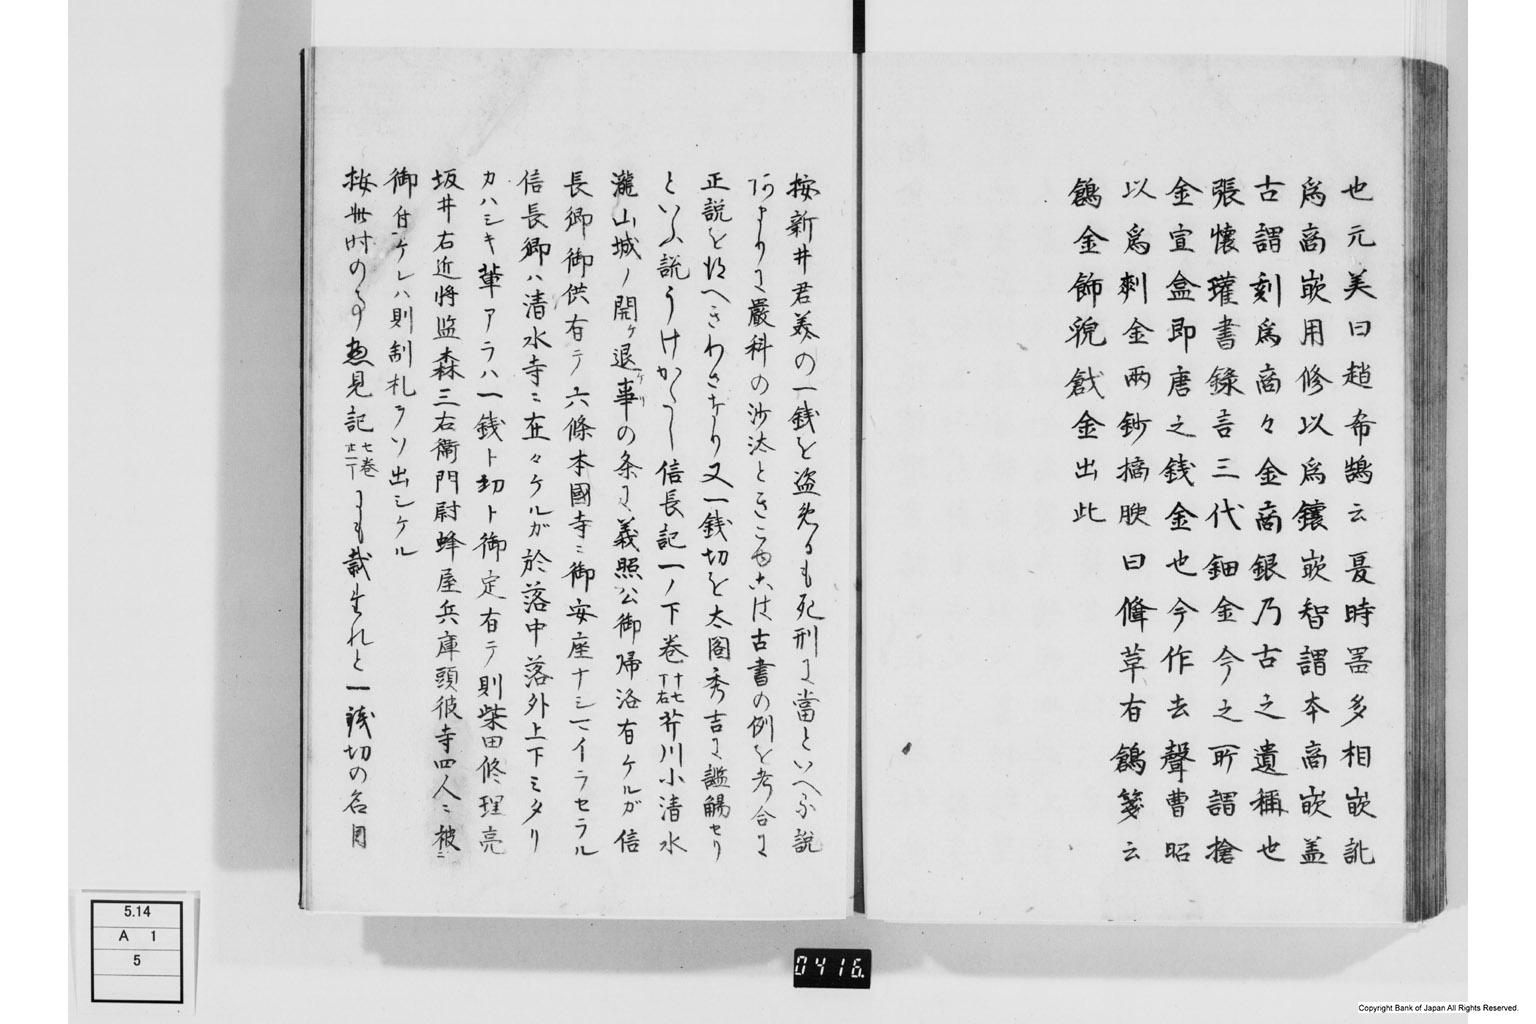 也元美曰趙希鵠云夏時器多相嵌訛
爲商嵌用修以爲鑲嵌智謂本商嵌盖
古謂刻爲商々金商銀乃古之遺稱也
張懷瓘書錄言三代鈿金今之所謂搶
金宣盒即唐之銭金也今作去聲曹昭
以爲剩金兩鈔摘腴曰脩草右鶬箋云
鶬金飾貌戧金出此
按新井君美の一銭を盗める も死刑に當といへる説
あまりに嚴科の沙汰ときこゆ 古書の例を考合に
正説を得へきわさなり又一銭切を太閤秀吉に濫觴せり
といふ説うけかたし信長記一ノ下巻十七丁右芥川小清水
瀧山城ノ開ケ退ケリ事の条に義照公御帰洛有ケルガ信
長卿御供有テ六條本國寺ニ御安座ナシマイラセラル
信長卿ハ清水寺ニ在々ケルガ於落中落外上下ミタリ
カハシキ輩アラハ一銭ト切ト御定有テ則柴田修理亮
坂井右近將監森三右衛門尉蜂屋兵庫頭彼寺四人ニ被ニ
御付ケレハ則制札ヲソ出シケル
按此時の事 見記七巻 にも載 れと一銭切の名目
5.14
A 1
5
0416
Copyright Bank of Japan All Rights Reserved.